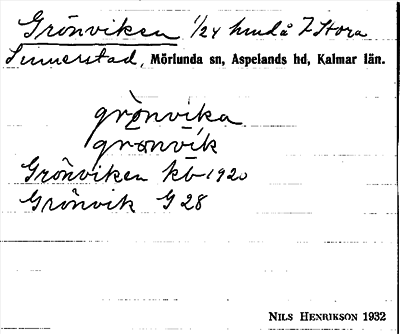 Grönviken 1/24 hmd å 7 Stora
Sinnerstad, Mörlunda sn, Aspelands hd, Kalmar län.
grònvika
grönvik
Grönviken kb 1920
Grönvik G 28
NILS HENRIKSON 1932